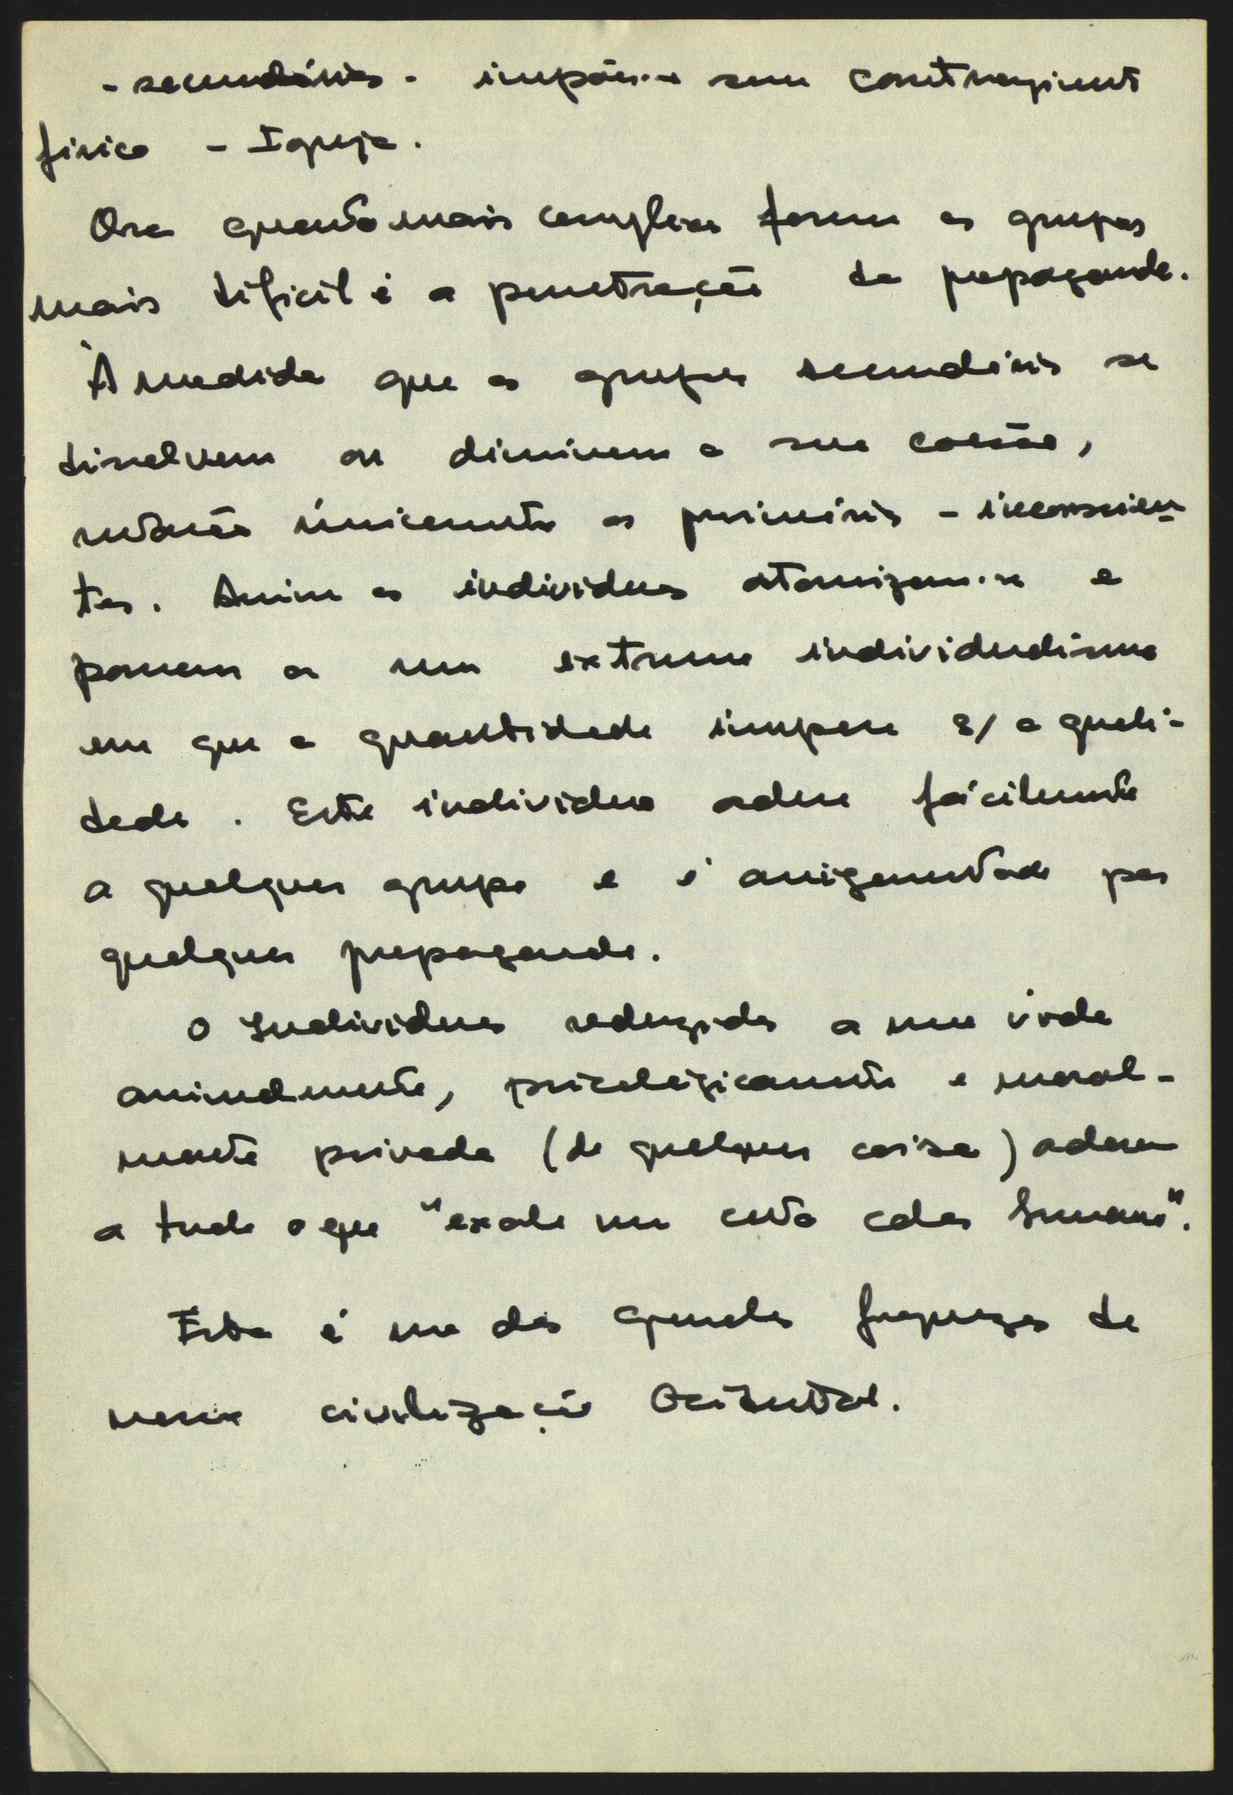 - secundários - impõe-se sem contrangimento
físico - Igreja.
Ora quanto mais complexos forem os grupos
mais difícil é a penetração da propaganda.
À medida que os grupos secundários se
dissolvem ou diminuem a sua coesão,
restarão únicamente os primários - inconscien-
tes. Assim os individuos atomizam-se e
passam a um extremo individualismo
em que a quantidade impera s/ a quali-
dade. Este individuo adere fácilmente
a qualquer grupo e é arrigimentado por
qualquer propaganda.
O Individuos reduzidos a uma vida
animalmente, psicológicamente e moral-
mente privada (de qualquer coisa) aderem
a tudo o que "exale um certo calor humano".
Esta é uma das grandes fraquezas da
nossa civilização Ocidental.